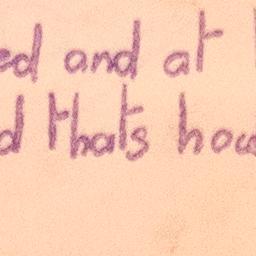 ed and at
d thats how